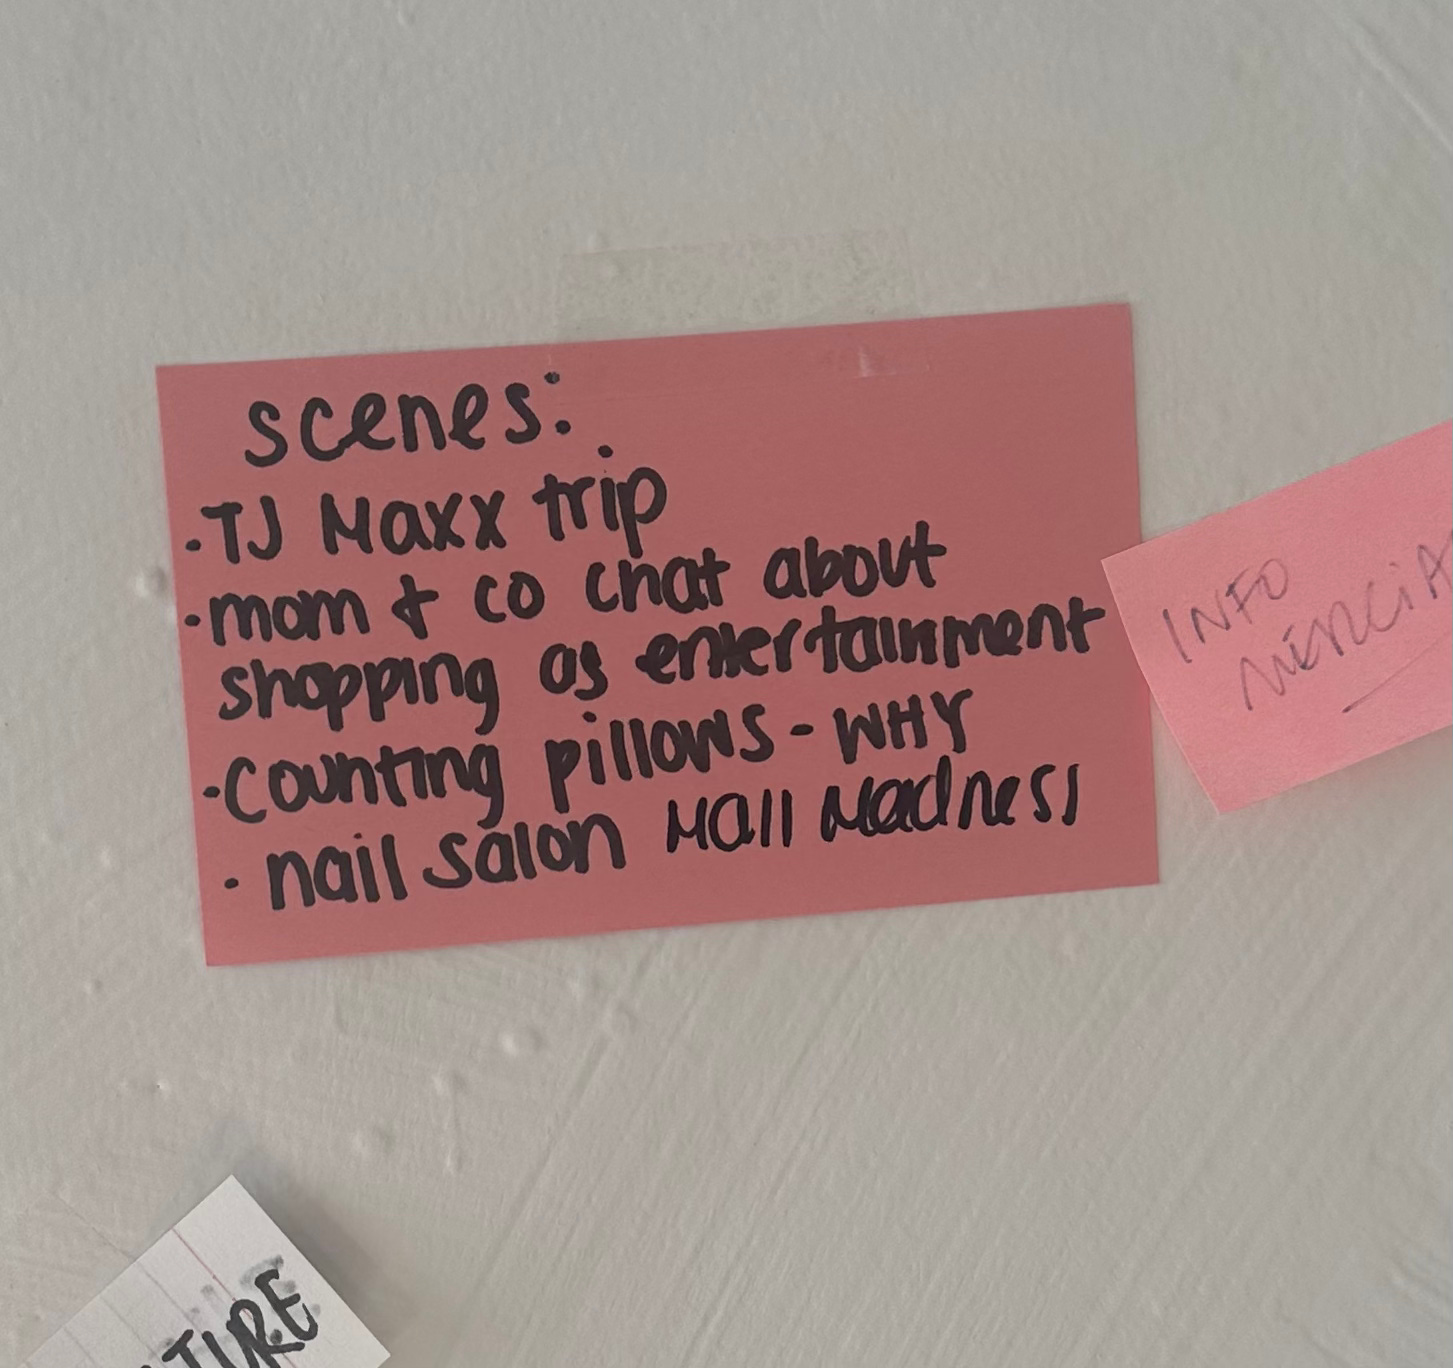 scenes:
·TJ Maxx trip
·mom & co chat about
shopping as entertainment
·counting pillows - WHY
· nail salon Mall Madness
INFO